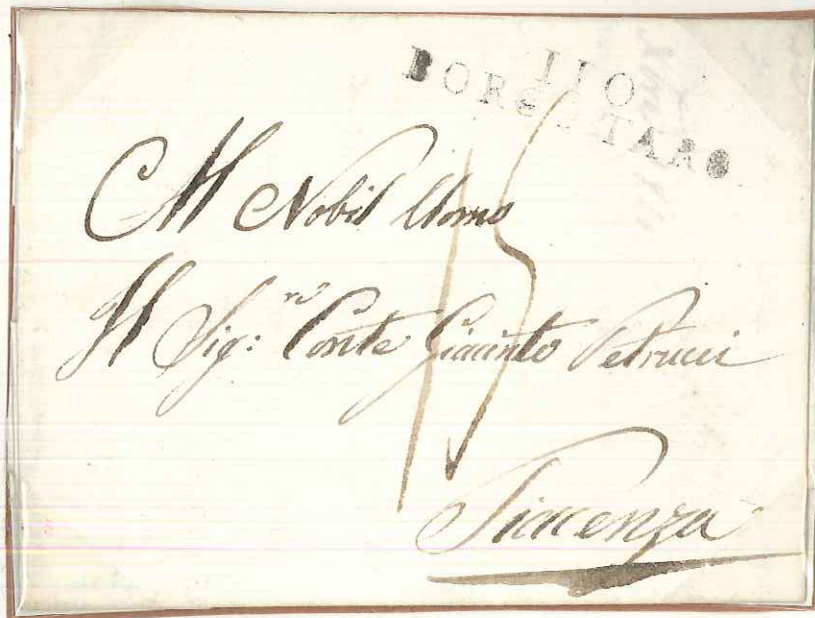 110
BORGOTARO
Al Nobil Uomo
Il Sig:re Conte Giacinto Petrucci
15
Piacenza